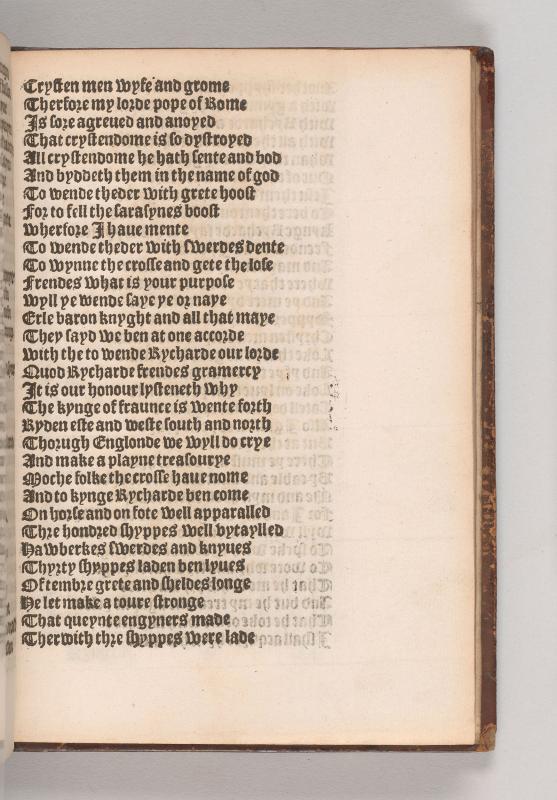 Crysten men wyfe and grome
Therfore my lorde pope of Rome
Is sore agreued and anoyed
That crystendome is so dystroyed
All crystendome he hath sente and bod
And byddeth them in the name of god
To wende theder with grete hoost
For to fell the sarasynes boost
wherfore I haue mente
To wende theder with swerdes dente
To wynne the crosse and gete the lose
Frendes what is your purpose
wyll ye wende saye ye or naye
Erle baron knyght and all that maye
They sayd we ben at one accorde
with the to wende Rycharde our lorde
Quod Rycharde frendes gramercy
It is our honour lysteneth why
The kynge of fraunce is wente forth
Ryden este and weste south and north
Thorugh Englonde we wyll do crye
And make a playne treasourye
Moche folke the crosse haue nome
And to kynge Rycharde ben come
On horse and on fote well apparalled
Thre hondred shyppes well vytaylled
Hawberkes swerdes and knyues
Thyrty shyppes laden ben lyues
Of tembre grete and sheldes longe
He let make a toure stronge
That queynte engyners made
Therwith thre shyppes were lade